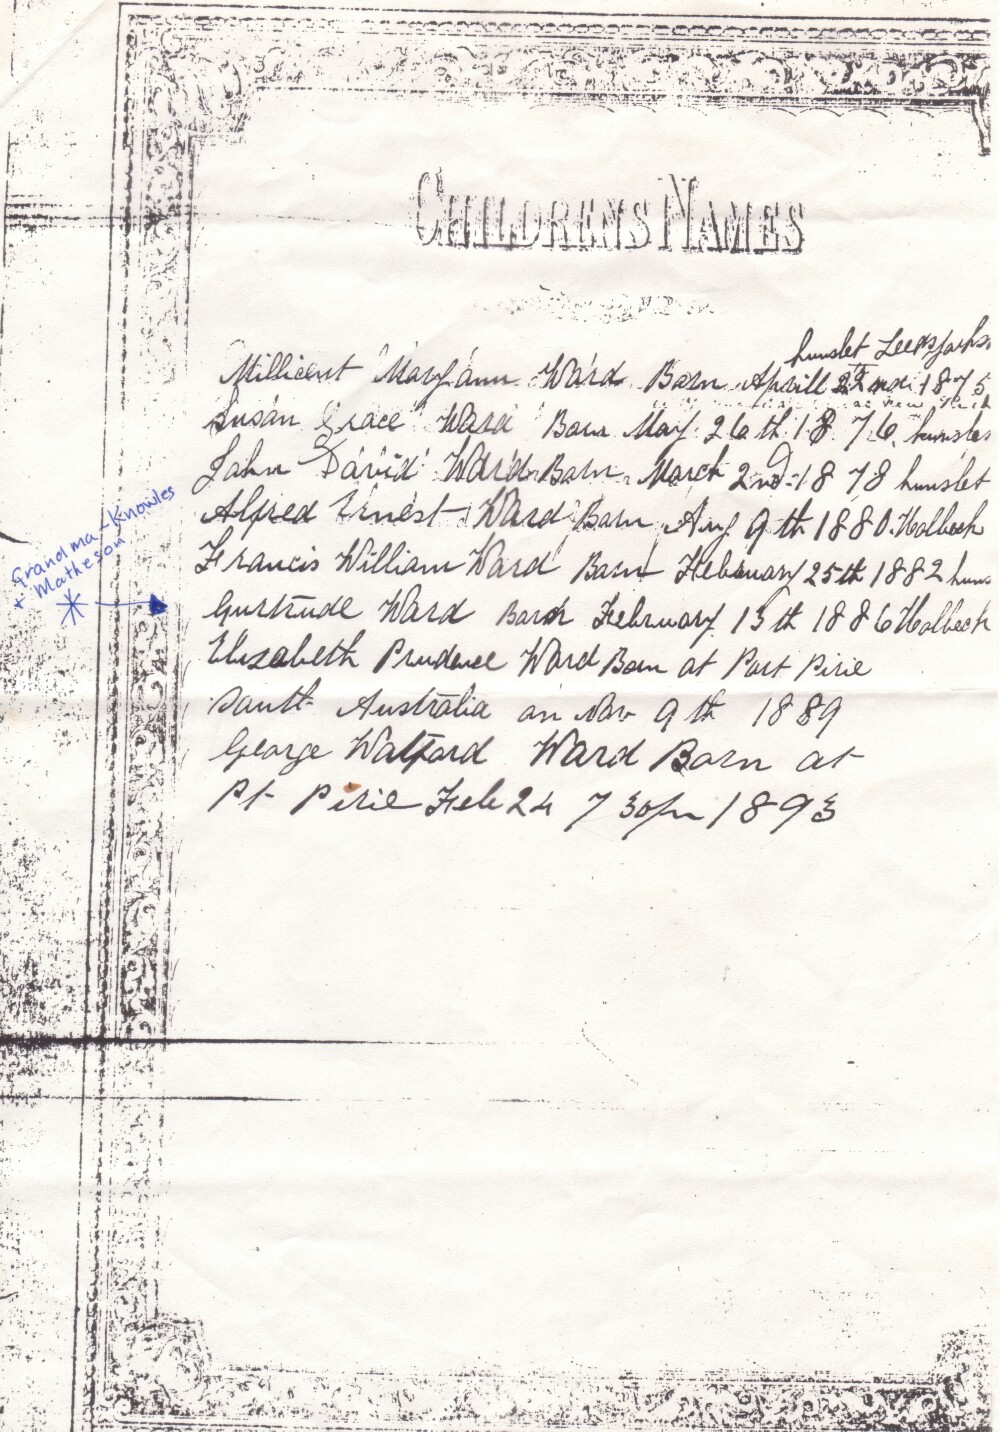 CHILDRENS NAMES
hunslet Leeds Yorks
Millicent Maryann Ward Born Aprill 22nd 1875
Susan Grace Ward Born May 26th 1876 hunslet
John David Ward Born March 2nd 1878 hunslet
Alfred Ernest Ward Born Aug 9th 1880 Holbeck
Francis William Ward Born February 25th 1882 huns
Gurtrude Ward Born February 13th 1886 Holbeck
Elizabeth Prudence Ward Born at Port Pirie
South Australia on Nov 9th 1889
George Watford Ward Born at
Pt Pirie Feb 24 7 30pm 1893
Grandma Knowles
+ Matheson